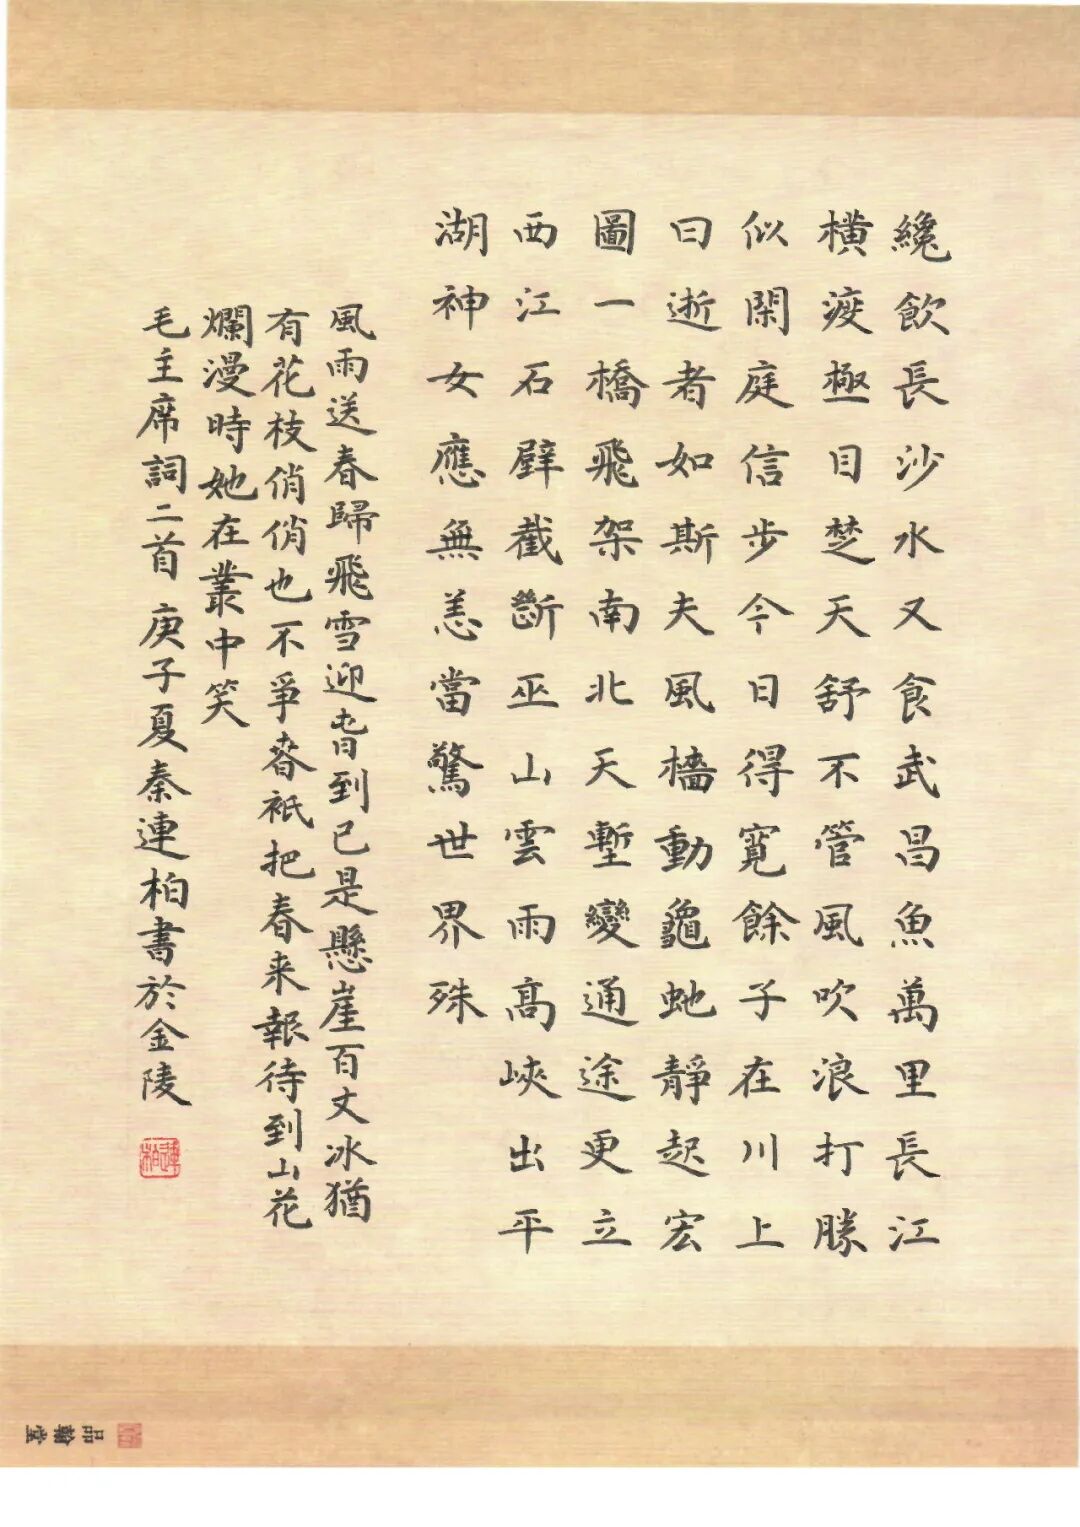 纔飲長沙水又食武昌魚萬里長江
橫渡極目楚天舒不管風吹浪打勝
似閑庭信步今日得寬餘子在川上
曰逝者如斯夫風檣動龜虵靜起宏
圖一橋飛架南北天塹變通途更立
西江石壁截斷巫山雲雨高峽出平
湖神女應無恙當驚世界殊
風雨送春歸飛雪迎旾到已是懸崖百丈冰猶
有花枝俏俏也不爭春祇把春来報待到山花
爛漫時她在叢中笑
毛主席詞二首 庚子夏秦連柏書於金陵
連柏
品翰堂